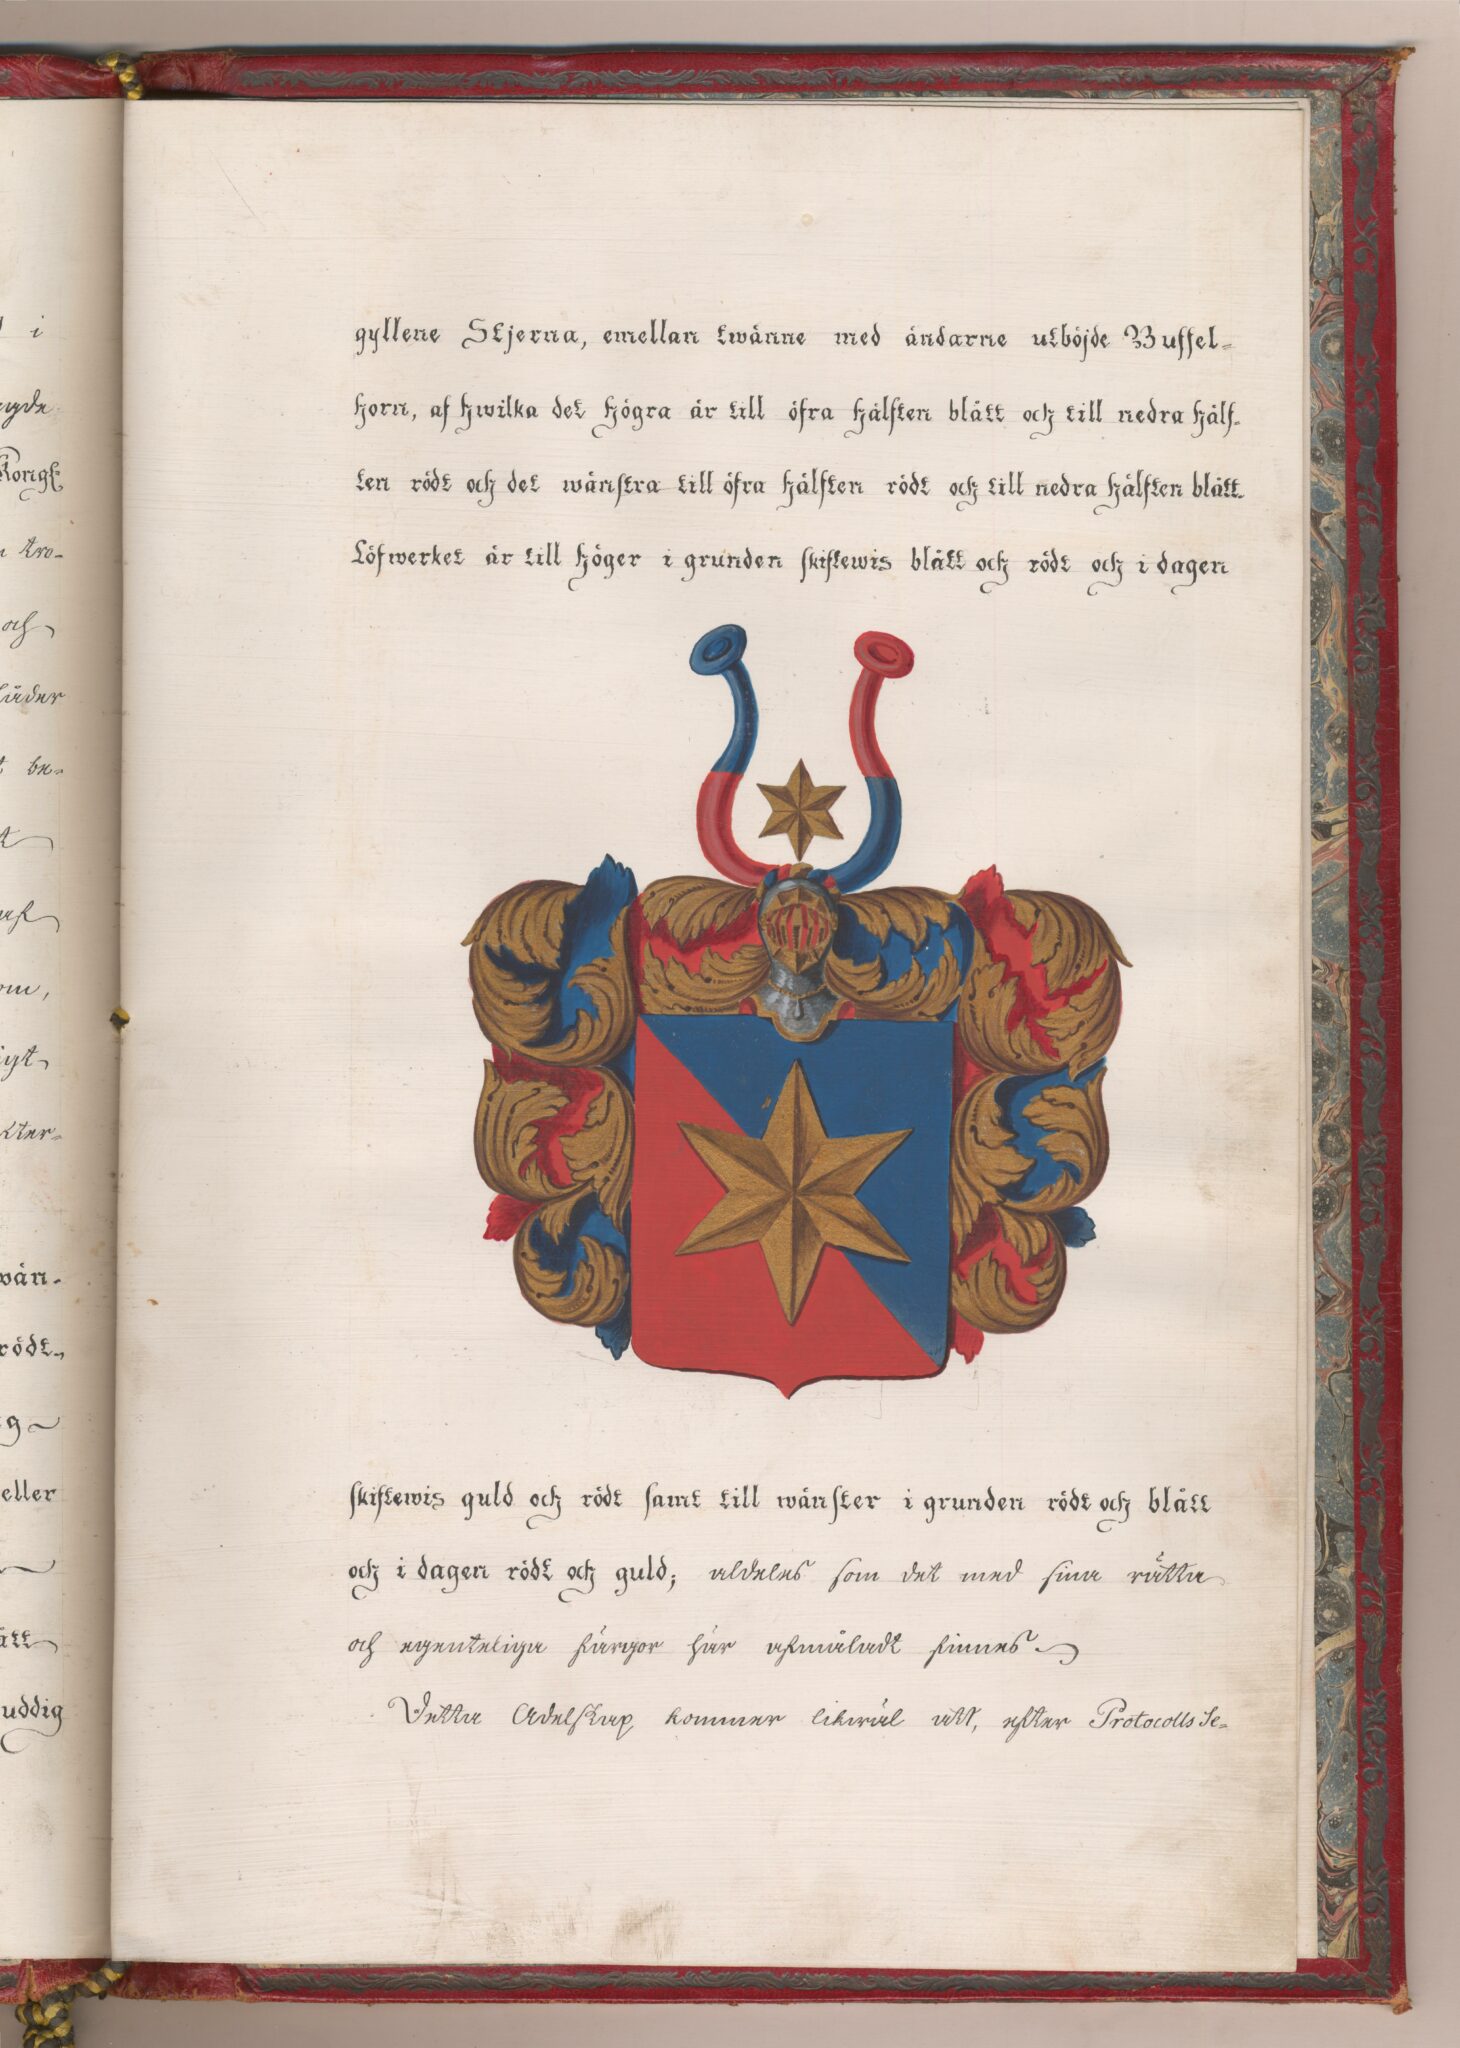 i
Kongl
och
be-
wän-
rödt,
eller
uddig
gyllene Stjerna, emellan twänne med ändarne utböjde Buffel-
horn, af hwilka det högra är till öfra hälften blått och till nedra hälf-
ten rödt och det wänstra till öfra hälften rödt och till nedra hälften blått.
Löfwerket är till höger i grunden skiftewis blått och rödt och i dagen
skiftewis guld och rödt samt till wänster i grunden rödt och blått
och i dagen rödt och guld; aldeles som det med sina rätta
och egenteliga färgor här afmåladt finnes.
Detta Adelskap kommer likwäl att, efter Protocolls Se-